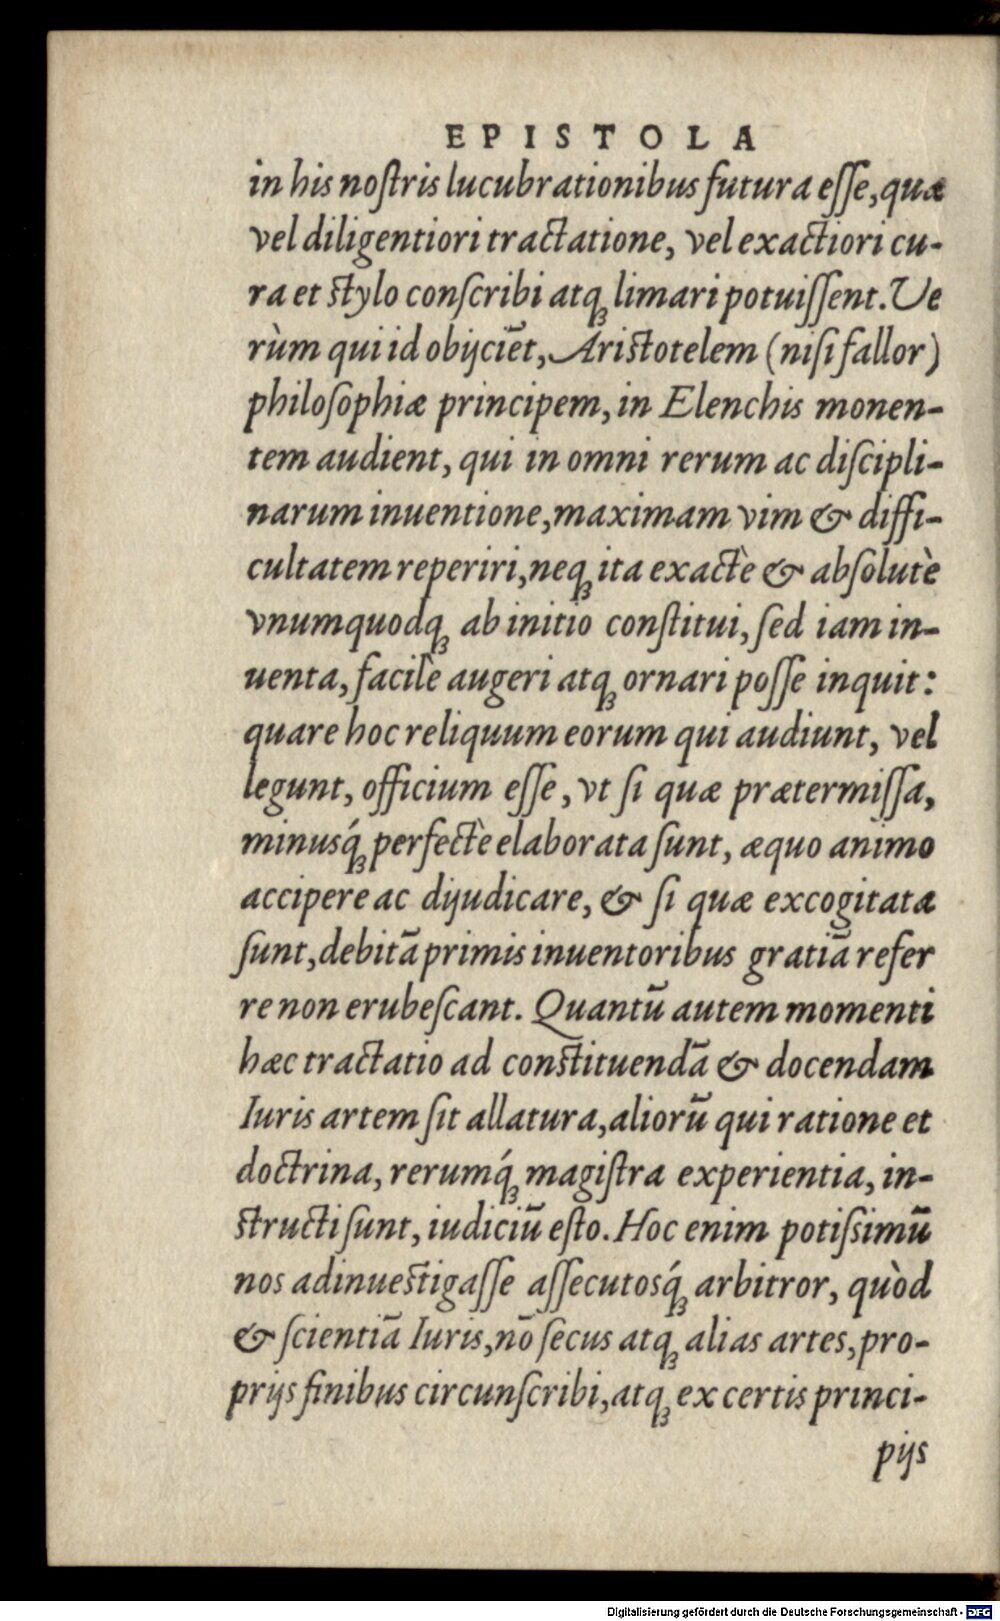 EPISTOLA
in his noſtris lucubrationibus futura eſſe, quæ
vel diligentiori tractatione, vel exactiori cu-
ra et ſtylo conſcribi atq̃ limari potuiſſent. Ve
rùm qui id obijciẽt, Ariſtotelem (niſi fallor)
philoſophiæ principem, in Elenchis monen-
tem audient, qui in omni rerum ac diſcipli-
narum inuentione, maximam vim & diffi-
cultatem reperiri, neqꝫ ita exactè & abſolutè
vnumquodqꝫ ab initio conſtitui, ſed iam in-
uenta, facilè augeri atqꝫ ornari poſſe inquit:
quare hoc reliquum eorum qui audiunt, vel
legunt, officium eſſe, vt ſi quæ prætermiſſa,
minusq́ꝫ perfectè elaborata ſunt, æquo animo
accipere ac dijudicare, & ſi quæ excogitata
ſunt, debitã primis inuentoribus gratiã refer
re non erubeſcant. Quantũ autem momenti
hæc tractatio ad conſtituendã & docendam
Iuris artem ſit allatura, aliorũ qui ratione et
doctrina, rerumq́ꝫ magiſtra experientia, in-
ſtructi ſunt, iudiciũ eſto. Hoc enim potiſsimũ
nos adinueſtigaſſe aſſecutosq́ꝫ arbitror, quòd
& ſcientiã Iuris, nõ ſecus atqꝫ alias artes, pro-
prijs finibus circunſcribi, atqꝫ ex certis princi-
pijs
Digitalisierung gefördert durch die Deutsche Forschungsgemeinschaft - DFG